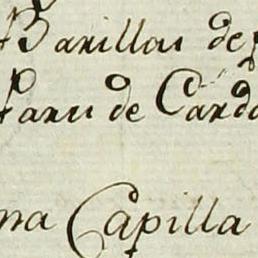 Barillas de
Para de Card
na Capilla